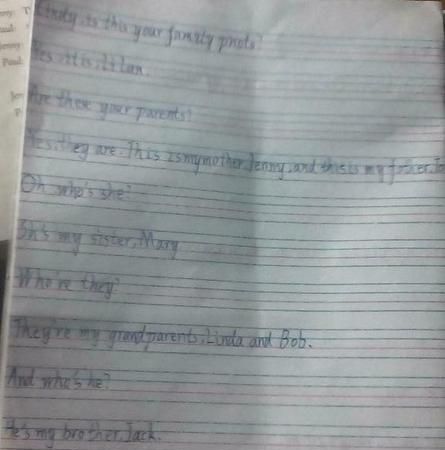 Cindy, is this your family photo?
Yes, it is, Li Lan.
Are these your parents?
Yes, they are. This is my mother, Jenny, and this is my father,
Oh, who's she?
Sh's my sister, Mary
Who're they?
They're my grandparents, Linda and Bob.
And who's he?
He's my brother, Jack.